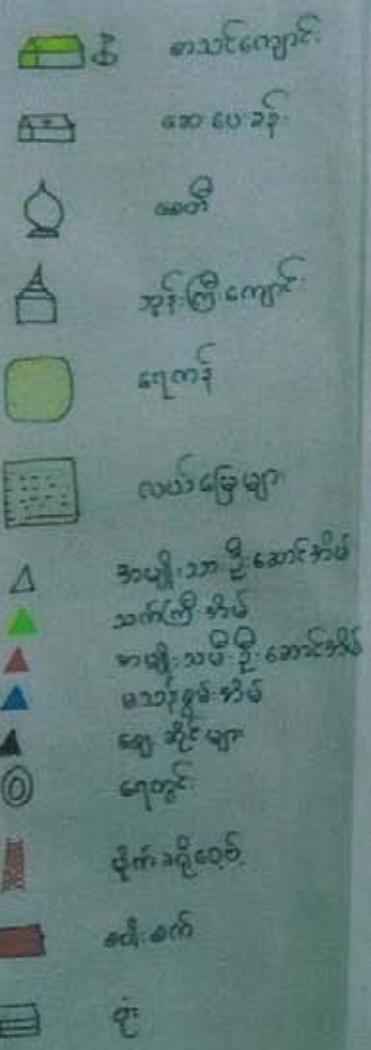 စာသင်ကျောင်း
ဆေးပေးခန်း
စေတီ
ဘုန်းကြီးကျောင်း
ရေကန်
လယ်မြေများ
အမျိုးသားဦးဆောင်အိမ်
သက်ကြီးအိမ်
အမျိုးသမီးဦးဆောင်အိမ်
မသန်စွမ်းအိမ်
ဈေးဆိုင်များ
ရေတွင်း
ရုံး